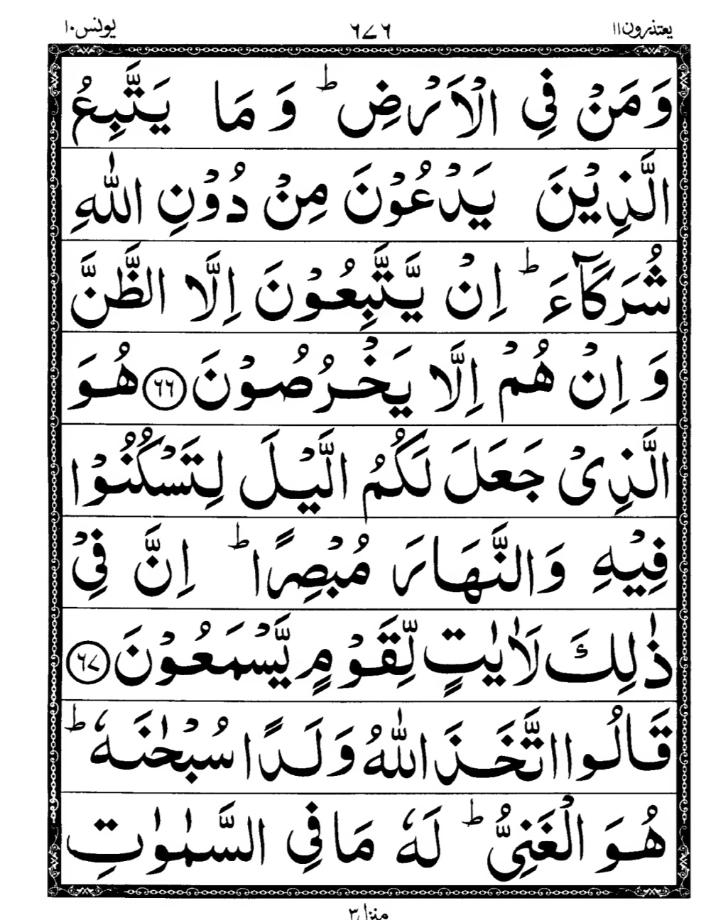 يعتذرون۱۱ ۶۷۶ يونس۱۰
وَ مَنْ فِي الْاَرْضِ ؕ وَ مَا يَتَّبِعُ
الَّذِيْنَ يَدْعُوْنَ مِنْ دُوْنِ اللّٰهِ
شُرَكَآءَ ؕ اِنْ يَّتَّبِعُوْنَ اِلَّا الظَّنَّ
وَ اِنْ هُمْ اِلَّا يَخْرُصُوْنَ ﴿۶۶﴾ هُوَ
الَّذِيْ جَعَلَ لَكُمُ الَّيْلَ لِتَسْكُنُوْا
فِيْهِ وَالنَّهَارَ مُبْصِرًا ؕ اِنَّ فِيْ
ذٰلِكَ لَاٰيٰتٍ لِّقَوْمٍ يَّسْمَعُوْنَ ﴿۶۷﴾
قَالُوا اتَّخَذَ اللّٰهُ وَلَدًا سُبْحٰنَهٗ ؕ
هُوَ الْغَنِيُّ ؕ لَهٗ مَا فِي السَّمٰوٰتِ
منزل۳